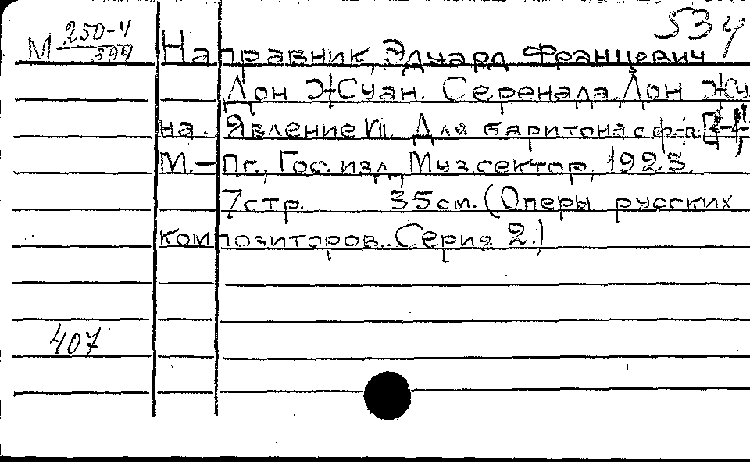 534
М 250-4
599
Направник, Эдуард Францевич
Дон Жуан. Серенада Дон Жу
на. Явление VI. Для баритона с ф-п.
М.–Пг., Гос. изд. Муз сектор, 1923.
7 стр. 35 см. (Оперы русских
композиторов. Серия 2.)
407